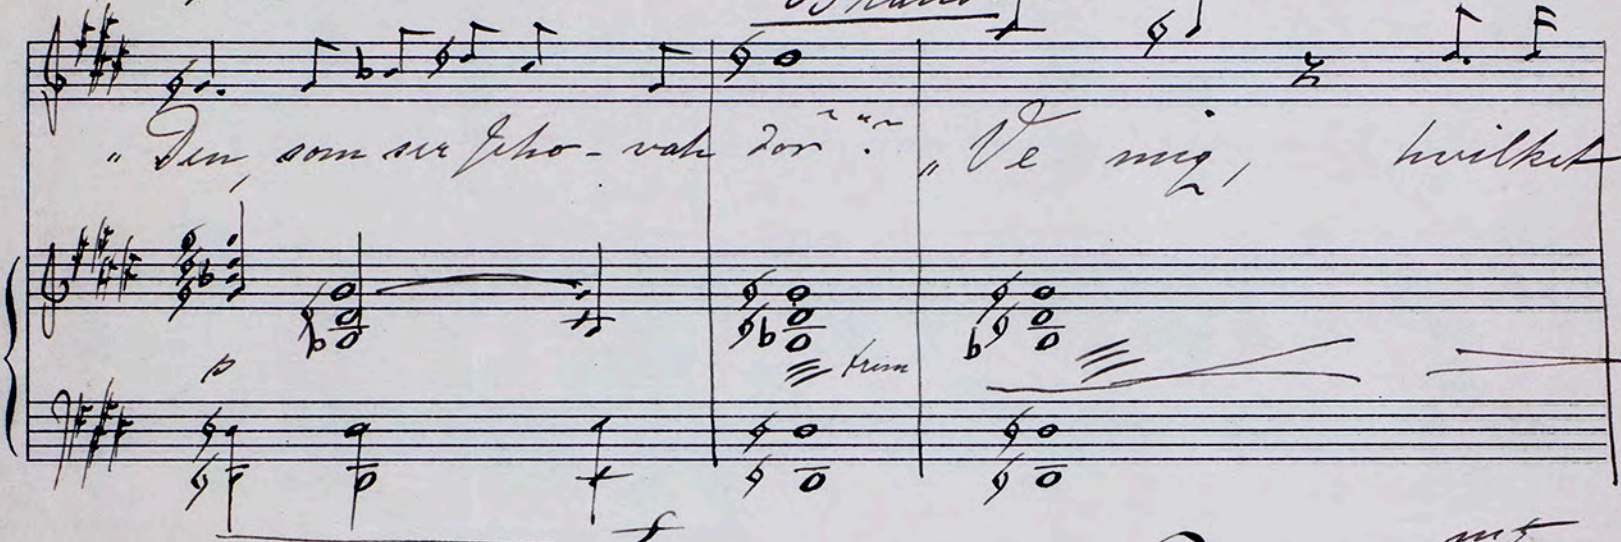 Brand
„Den, som ser Jeho-vah dör”.” „Ve mig, hvilket
p
trem
f mf